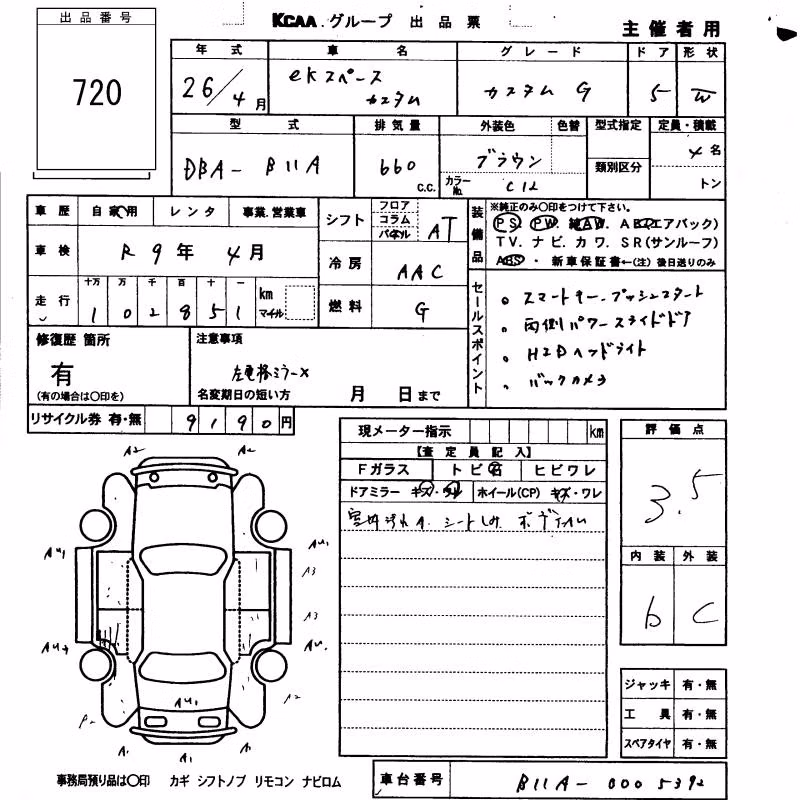 KCAA.グループ 出品票
主催者用
出品番号
720
年式 車名 グレード ドア 形状
26/4月 ekスペース カスタム カスタム G 5 W
型式 排気量 外装色 色替 型式指定 定員・積載
DBA- B11A 660 C.C. ブラウン 4名
カラーNo. C12 類別区分 トン
車歴 自家用 レンタ 事業.営業車 シフト フロア コラム パネル AT
車検 R 9年 4月 冷房 AAC
走行 十万 万 千 百 十 一 km マイル
1 0 2 8 5 1
燃料 G
装備品 ※純正のみ〇印をつけて下さい。
PS. PW. 純AW. AB(エアバック)
TV. ナビ. カワ. SR(サンルーフ)
ABS・新車保証書←(注)後日送りのみ
セールスポイント
。スマートキー.プッシュスタート
。両側パワースライドドア
。HIDヘッドライト
.バックカメラ
修復歴 箇所 注意事項
有 左電格ミラーX
(有の場合は〇印を) 名変期日の短い方 月 日まで
リサイクル券 有・無 9 1 9 0 円
現メーター指示 km
【査定員記入】
Fガラス トビ石 ヒビワレ
ドアミラー キズ・ワレ ホイール(CP) キズ・ワレ
室内汚れA. シートしみ
評価点
3.5
内装 外装
b C
A2 A2
AU1 AU1
A3
A3
AU1
P2 A2
A1 A1 A1
ジャッキ 有・無
工具 有・無
スペアタイヤ 有・無
事務局預り品は〇印 カギ シフトノブ リモコン ナビロム
車台番号 B11A-0005392